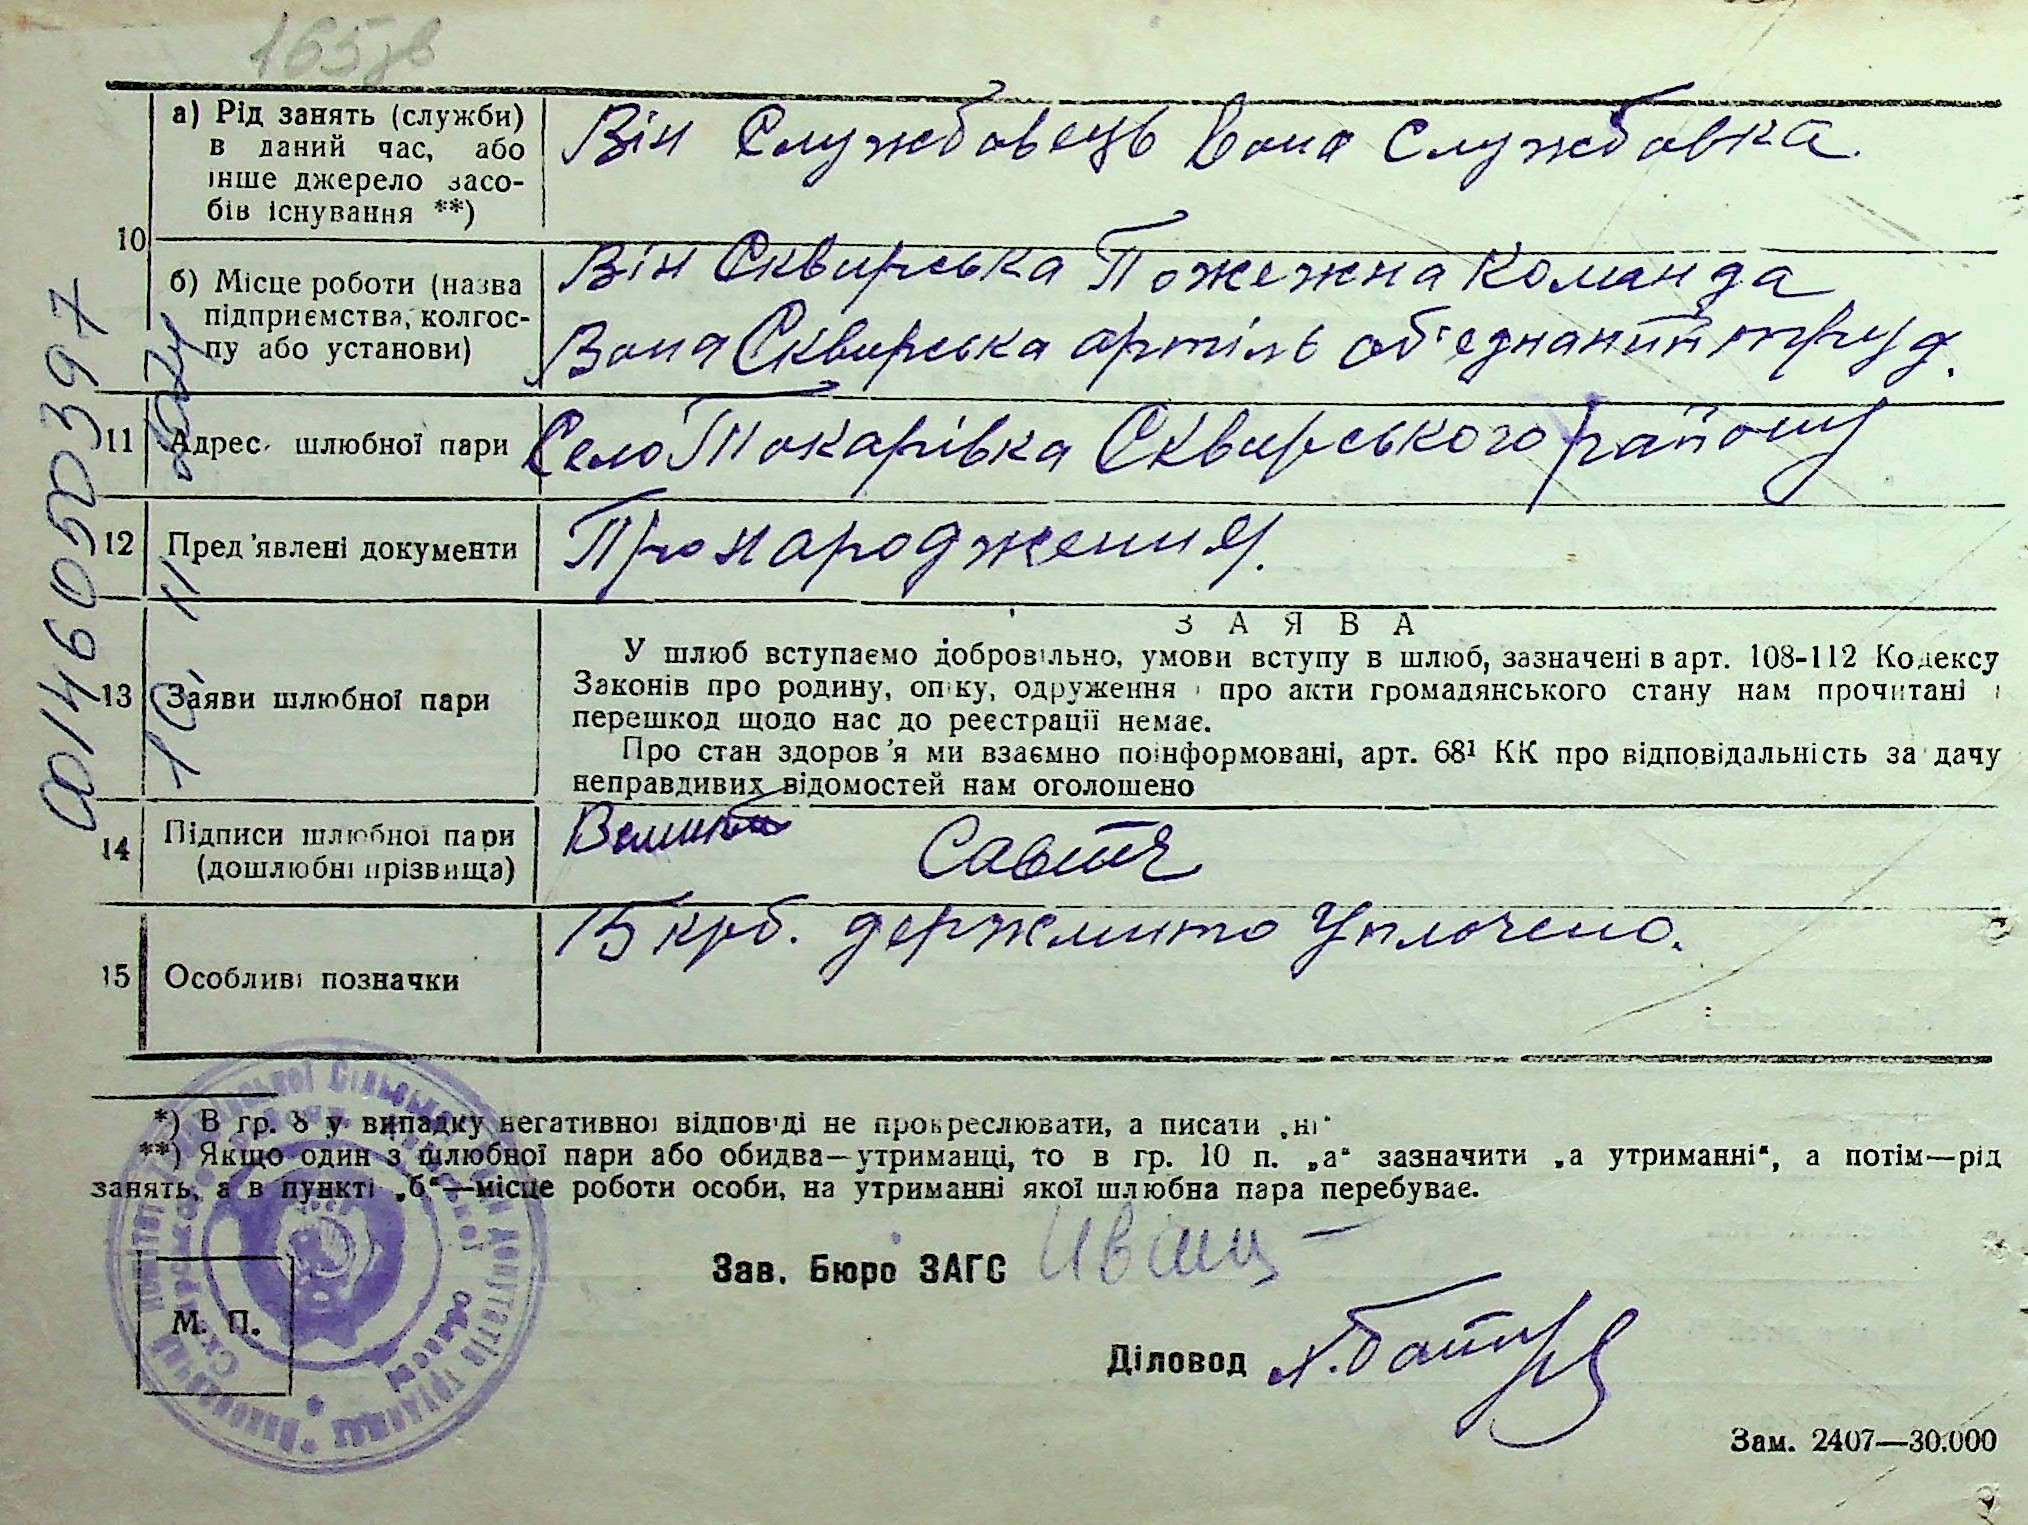 165зв
а) Рід занять (служби)
в даний час, або
інше джерело засо-
бів існування **)
Він Службовець Вона Службовка.
10
б) Місце роботи (назва
підприємства, колгос-
пу або установи)
Він Сквирська Пожежна Команда
Вона Сквирська артіль об'єднаний труд.
11
Адрес шлюбної пари
Село Токарівка Сквирського району
12
Пред'явлені документи
Про народження.
13
Заяви шлюбної пари
ЗАЯВА
У шлюб вступаємо добровільно, умови вступу в шлюб, зазначені в арт. 108-112 Кодексу
Законів про родину, опіку, одруження і про акти громадянського стану нам прочитані і
перешкод щодо нас до реєстрації немає.
Про стан здоров'я ми взаємно поінформовані, арт. 68¹ КК про відповідальність за дачу
неправдивих відомостей нам оголошено
14
Підписи шлюбної пари
(дошлюбні прізвища)
15
Особливі позначки
15 крб. держмито Уплочено.
00146050397
*) В гр. 8 у випадку негативної відповіді не прокреслювати, а писати „ні“
**) Якщо один з шлюбної пари або обидва—утриманці, то в гр. 10 п. „а“ зазначити „а утриманні“, а потім—рід
занять, а в пункті „б“—місце роботи особи, на утриманні якої шлюбна пара перебуває.
Зав. Бюро ЗАГС
М. П.
Діловод
Зам. 2407—30.000